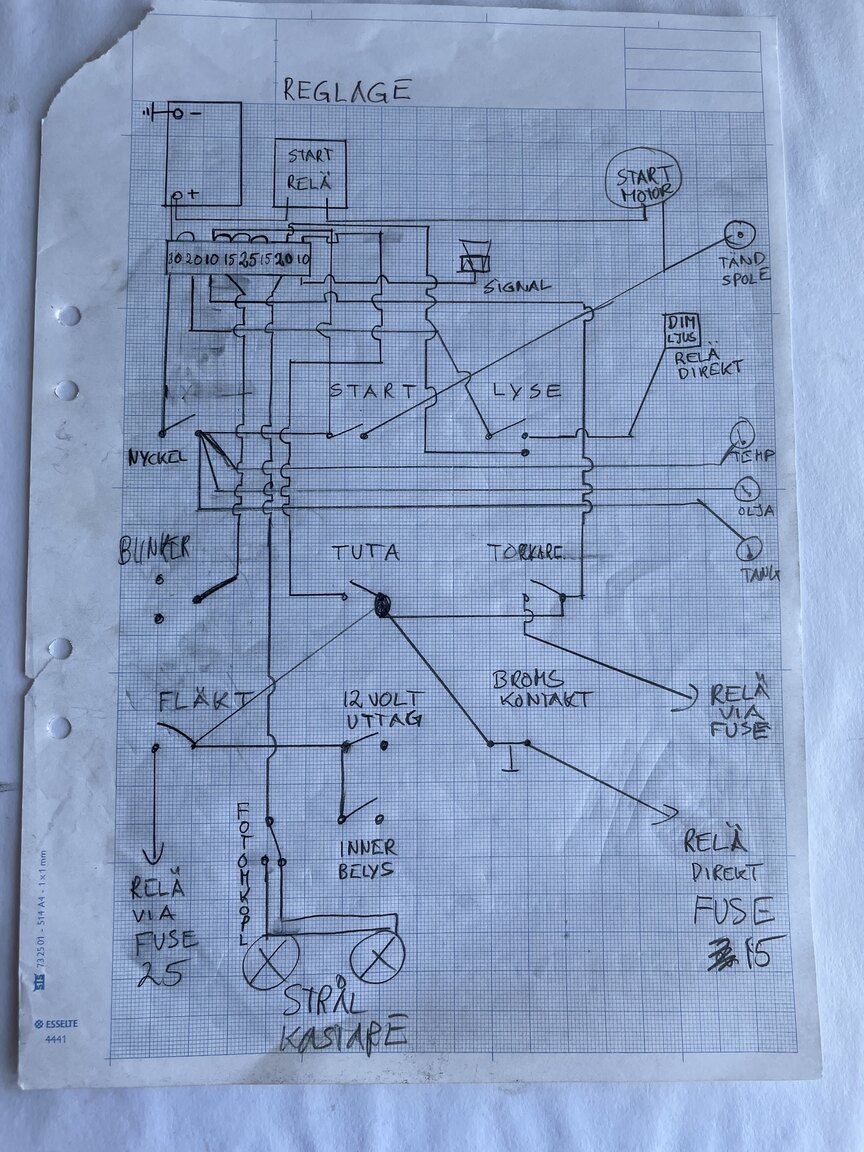 REGLAGE
−
START
RELÄ
+
START
MOTOR
30 20 10 15 25 15 20 10
SIGNAL
TÄND
SPOLE
DIM
LJUS
RELÄ
DIREKT
START
LYSE
NYCKEL
TEMP
OLJA
TANK
BUNKER
TUTA
TORKARE
FLÄKT
12 VOLT
UTTAG
BROMS
KONTAKT
RELÄ
VIA
FUSE
FOTOMKOPL
INNER
BELYS
RELÄ
DIREKT
FUSE
15
RELÄ
VIA
FUSE
25
STRÅL
KASTARE
SIS 73 25 01 - S14 A4 - 1 x 1 mm
ESSELTE
4441